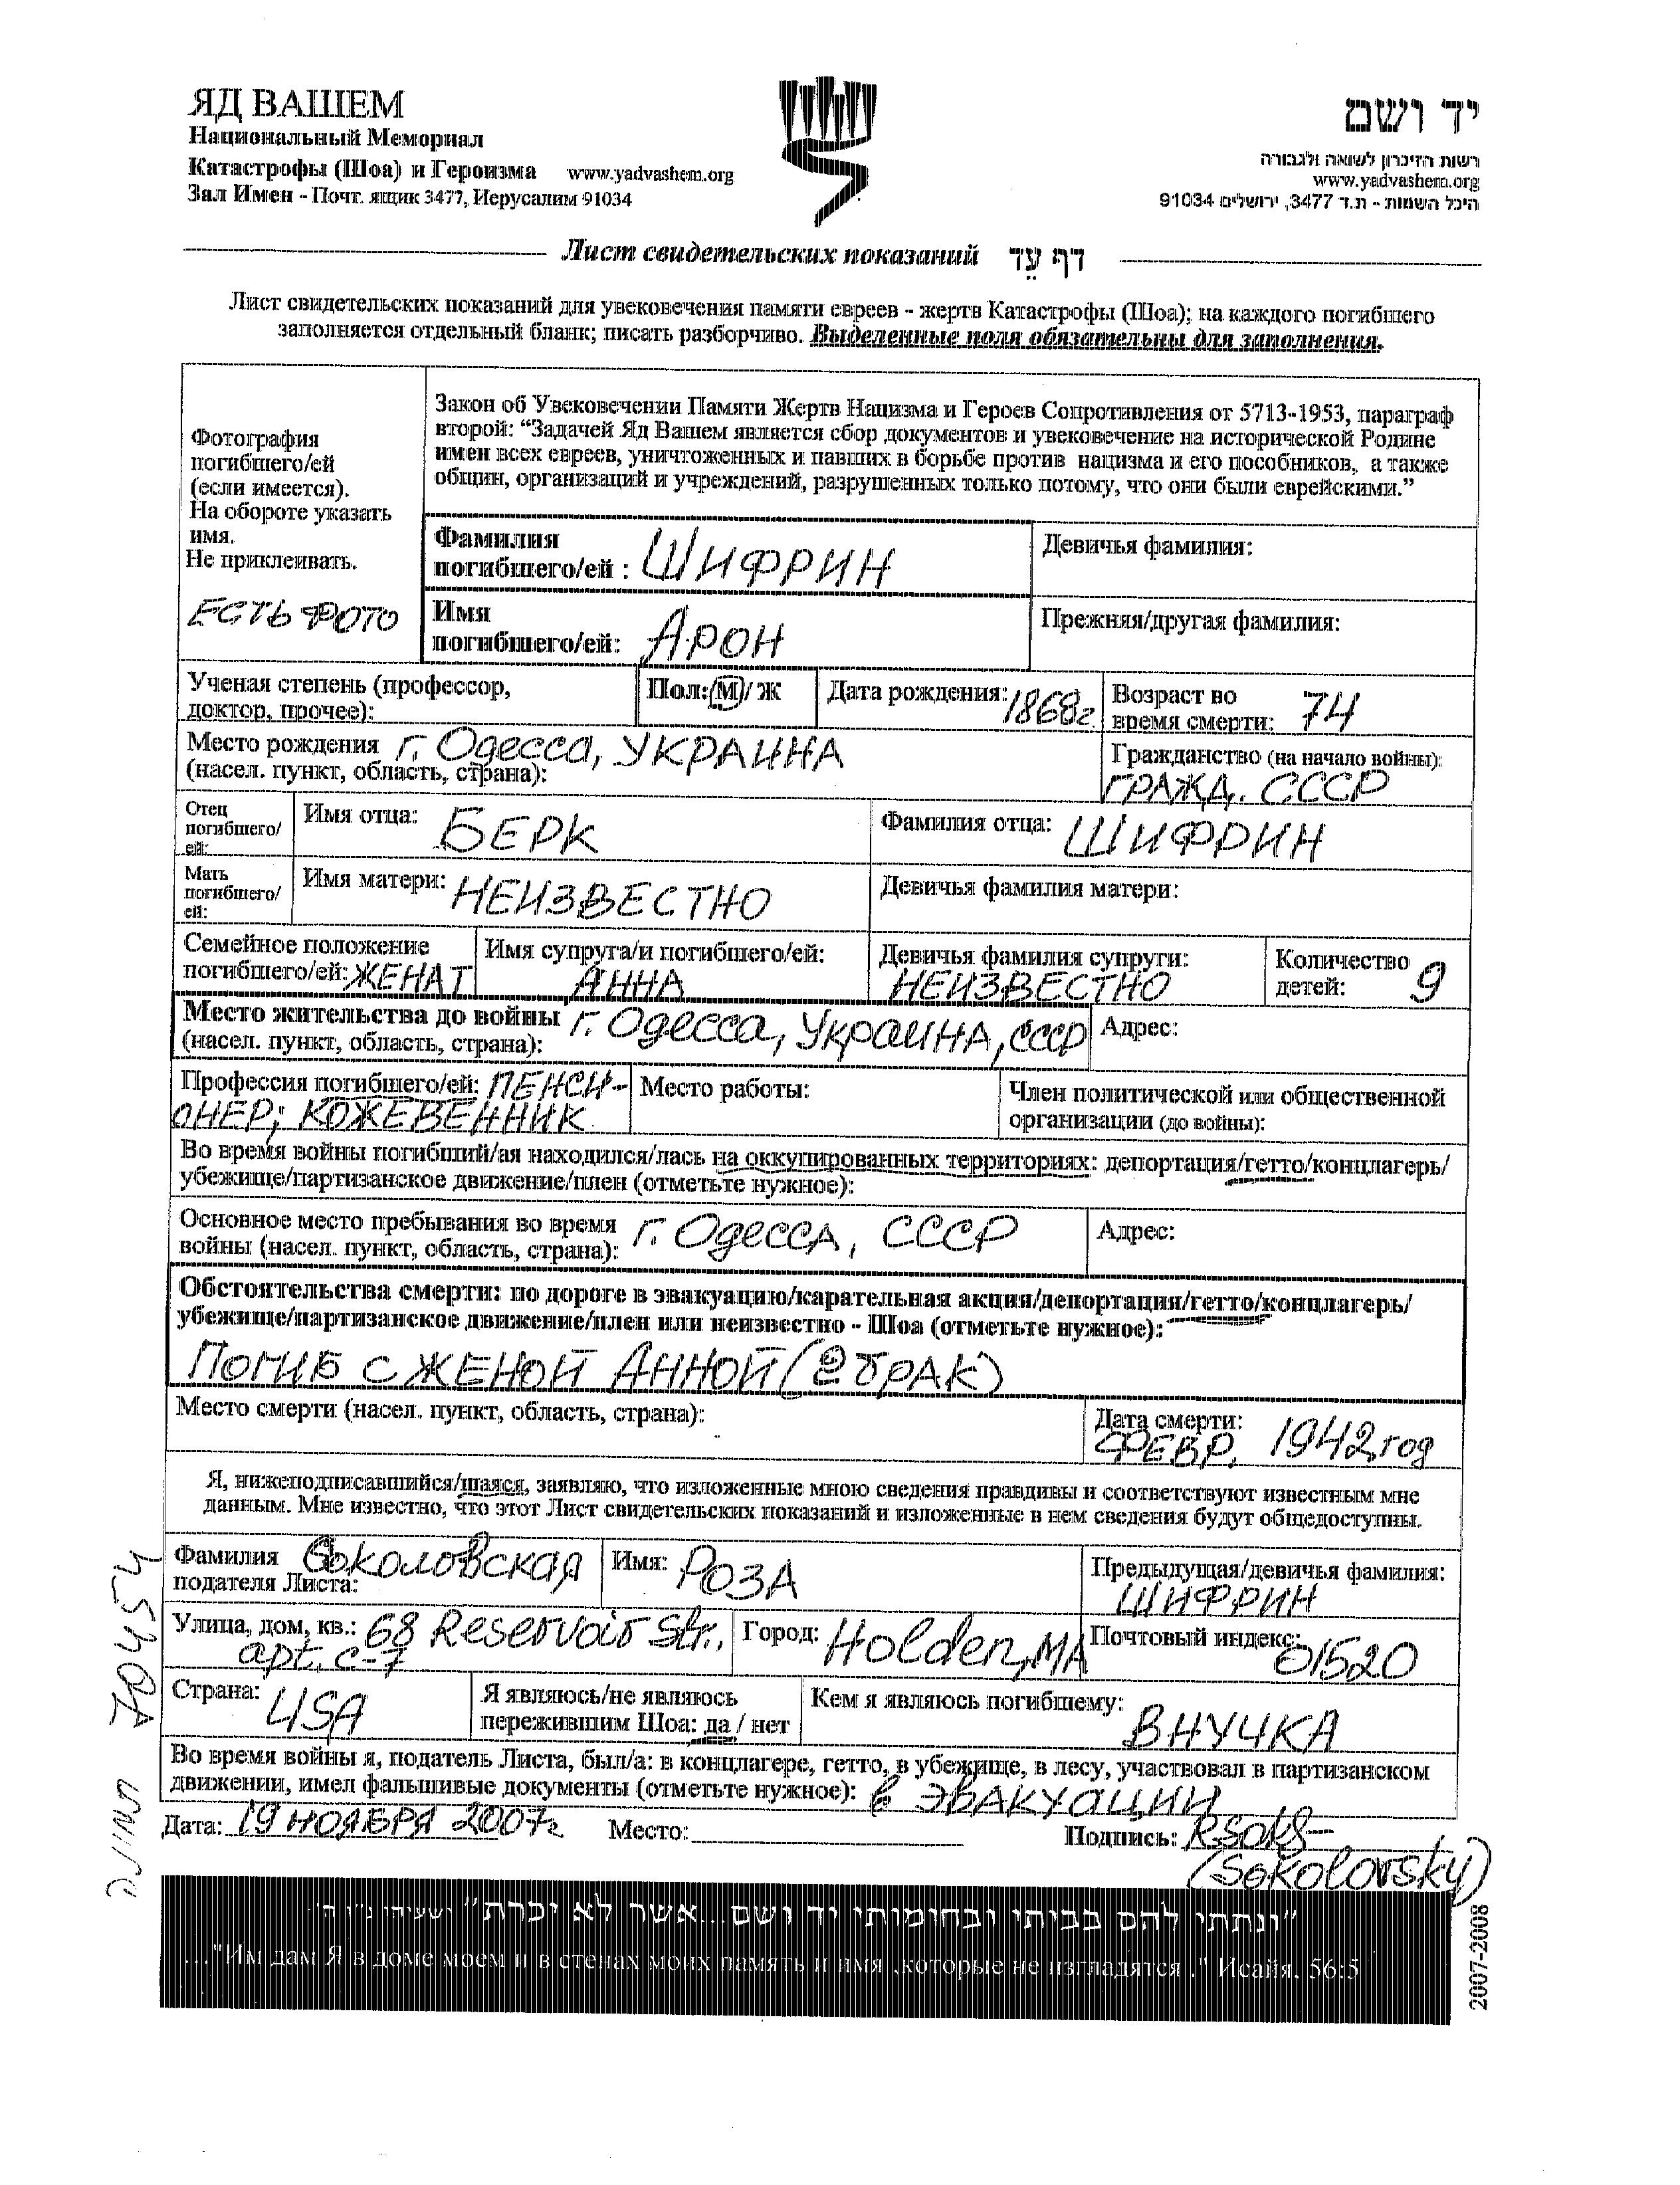 ЯД ВАШЕМ
Национальный Мемориал
Катастрофы (Шоа) и Героизма www.yadvashem.org
Зал Имен - Почт. ящик 3477, Иерусалим 91034
יד ושם
רשות הזיכרון לשואה ולגבורה
www.yadvashem.org
היכל השמות - ת.ד 3477, ירושלים 91034
Лист свидетельских показаний דף עֵד
Лист свидетельских показаний для увековечения памяти евреев - жертв Катастрофы (Шоа); на каждого погибшего
заполняется отдельный бланк; писать разборчиво. Выделенные поля обязательны для заполнения.
Фотография
погибшего/ей
(если имеется).
На обороте указать
имя.
Не приклеивать.
ЕСТЬ ФОТО
Закон об Увековечении Памяти Жертв Нацизма и Героев Сопротивления от 5713-1953, параграф
второй: “Задачей Яд Вашем является сбор документов и увековечение на исторической Родине
имен всех евреев, уничтоженных и павших в борьбе против нацизма и его пособников, а также
общин, организаций и учреждений, разрушенных только потому, что они были еврейскими.”
Фамилия
погибшего/ей : ШИФРИН
Девичья фамилия:
Имя
погибшего/ей: АРОН
Прежняя/другая фамилия:
Ученая степень (профессор,
доктор, прочее):
Пол: М/ Ж
Дата рождения: 1868г.
Возраст во
время смерти: 74
Место рождения г. Одесса, УКРАИНА
(насел. пункт, область, страна):
Гражданство (на начало войны):
ГРАЖД. СССР
Отец
погибшего/
ей:
Имя отца: БЕРК
Фамилия отца: ШИФРИН
Мать
погибшего/
ей:
Имя матери: НЕИЗВЕСТНО
Девичья фамилия матери:
Семейное положение
погибшего/ей: ЖЕНАТ
Имя супруга/и погибшего/ей:
АННА
Девичья фамилия супруги:
НЕИЗВЕСТНО
Количество
детей: 9
Место жительства до войны г. Одесса, Украина, СССР
(насел. пункт, область, страна):
Адрес:
Профессия погибшего/ей: ПЕНСИ-
ОНЕР; КОЖЕВЕННИК
Место работы:
Член политической или общественной
организации (до войны):
Во время войны погибший/ая находился/лась на оккупированных территориях: депортация/гетто/концлагерь/
убежище/партизанское движение/плен (отметьте нужное):
Основное место пребывания во время
войны (насел. пункт, область, страна): г. Одесса, СССР
Адрес:
Обстоятельства смерти: по дороге в эвакуацию/карательная акция/депортация/гетто/концлагерь/
убежище/партизанское движение/плен или неизвестно - Шоа (отметьте нужное):
ПОГИБ С ЖЕНОЙ АННОЙ (2 БРАК)
Место смерти (насел. пункт, область, страна):
Дата смерти:
ФЕВР. 1942 год
Я, нижеподписавшийся/шаяся, заявляю, что изложенные мною сведения правдивы и соответствуют известным мне
данным. Мне известно, что этот Лист свидетельских показаний и изложенные в нем сведения будут общедоступны.
Фамилия Соколовская
подателя Листа:
Имя: РОЗА
Предыдущая/девичья фамилия:
ШИФРИН
Улица, дом, кв.: 68 Reservoir Str.,
apt. c-7
Город: Holden, MA
Почтовый индекс:
01520
Страна: USA
Я являюсь/не являюсь
пережившим Шоа: да / нет
Кем я являюсь погибшему:
ВНУЧКА
Во время войны я, податель Листа, был/а: в концлагере, гетто, в убежище, в лесу, участвовал в партизанском
движении, имел фальшивые документы (отметьте нужное): в ЭВАКУАЦИИ
Дата: 19 НОЯБРЯ 2007г. Место: Подпись:
(Sokolovsky)
תמונה 70454
"ונתתי להם בביתי ובחומותי יד ושם...אשר לא יכרת" ישעיהו נ"ו ה'
..."Им дам Я в доме моем и в стенах моих память и имя ,которые не изгладятся ." Исайя. 56:5
2007-2008